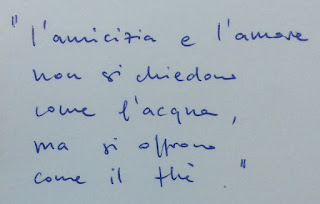 "l'amicizia e l'amore
non si chiedono
come l'acqua,
ma si offrono
come il thè."